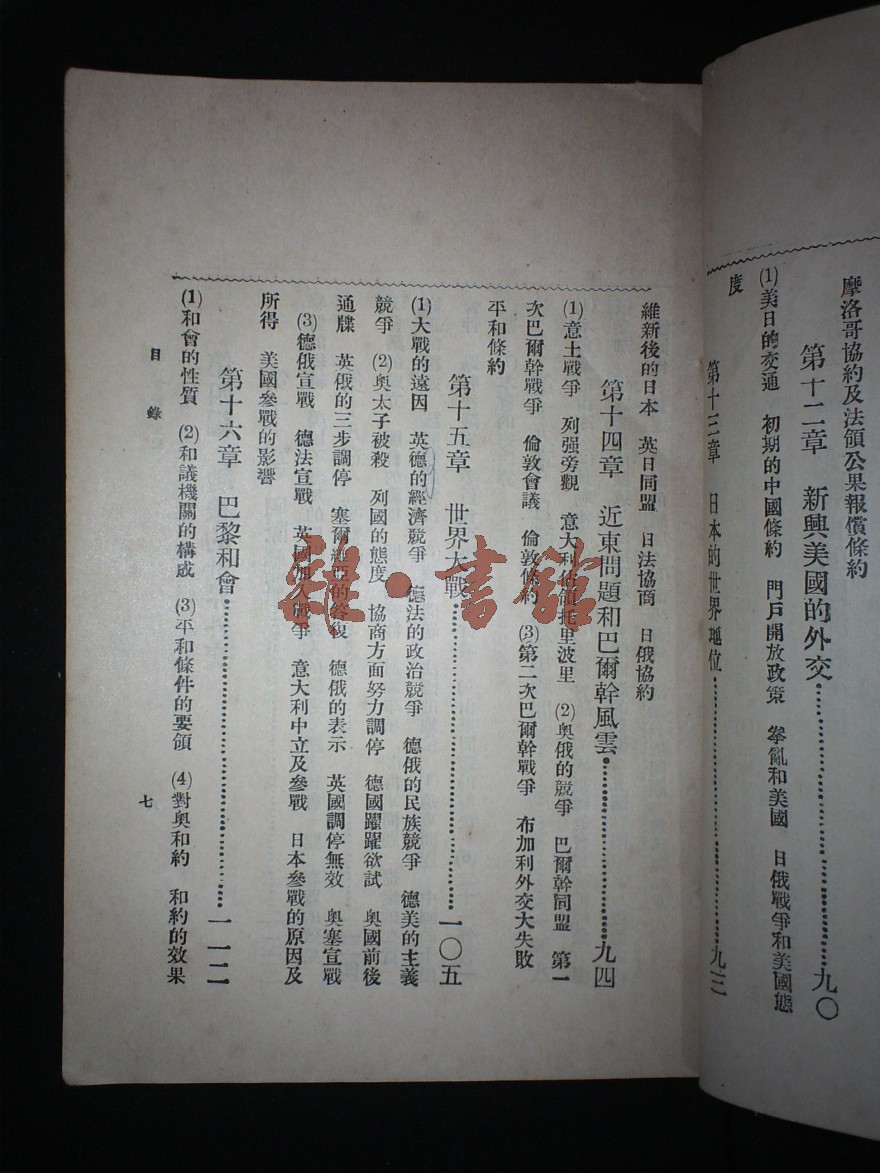 摩洛哥協約及法領公果報償條約
第十二章　新興美國的外交………九〇
(1)美日的交通　初期的中國條約　門戶開放政策　拳亂和美國　日俄戰爭和美國態
度
第十三章　日本的世界地位………九三
維新後的日本　英日同盟　日法協商　日俄協約
第十四章　近東問題和巴爾幹風雲………九四
(1)意土戰爭　列强旁觀　意大利佔領托里波里　(2)奧俄的競爭　巴爾幹同盟　第一
次巴爾幹戰爭　倫敦會議　倫敦條約　(3)第二次巴爾幹戰爭　布加利外交大失敗
平和條約
第十五章　世界大戰………一〇五
(1)大戰的遠因　英德的經濟競爭　德法的政治競爭　德俄的民族競爭　德美的主義
競爭　(2)奧太子被殺　列國的態度　協商方面努力調停　德國躍躍欲試　奧國前後
通牒　英俄的三步調停　塞爾維亞的答復　德俄的表示　英國調停無效　奧塞宣戰
(3)德俄宣戰　德法宣戰　英國加入戰爭　意大利中立及參戰　日本參戰的原因及
所得　美國參戰的影響
第十六章　巴黎和會………一一二
(1)和會的性質　(2)和議機關的構成　(3)平和條件的要領　(4)對奧和約　和約的效果
目錄
七
雜·書館